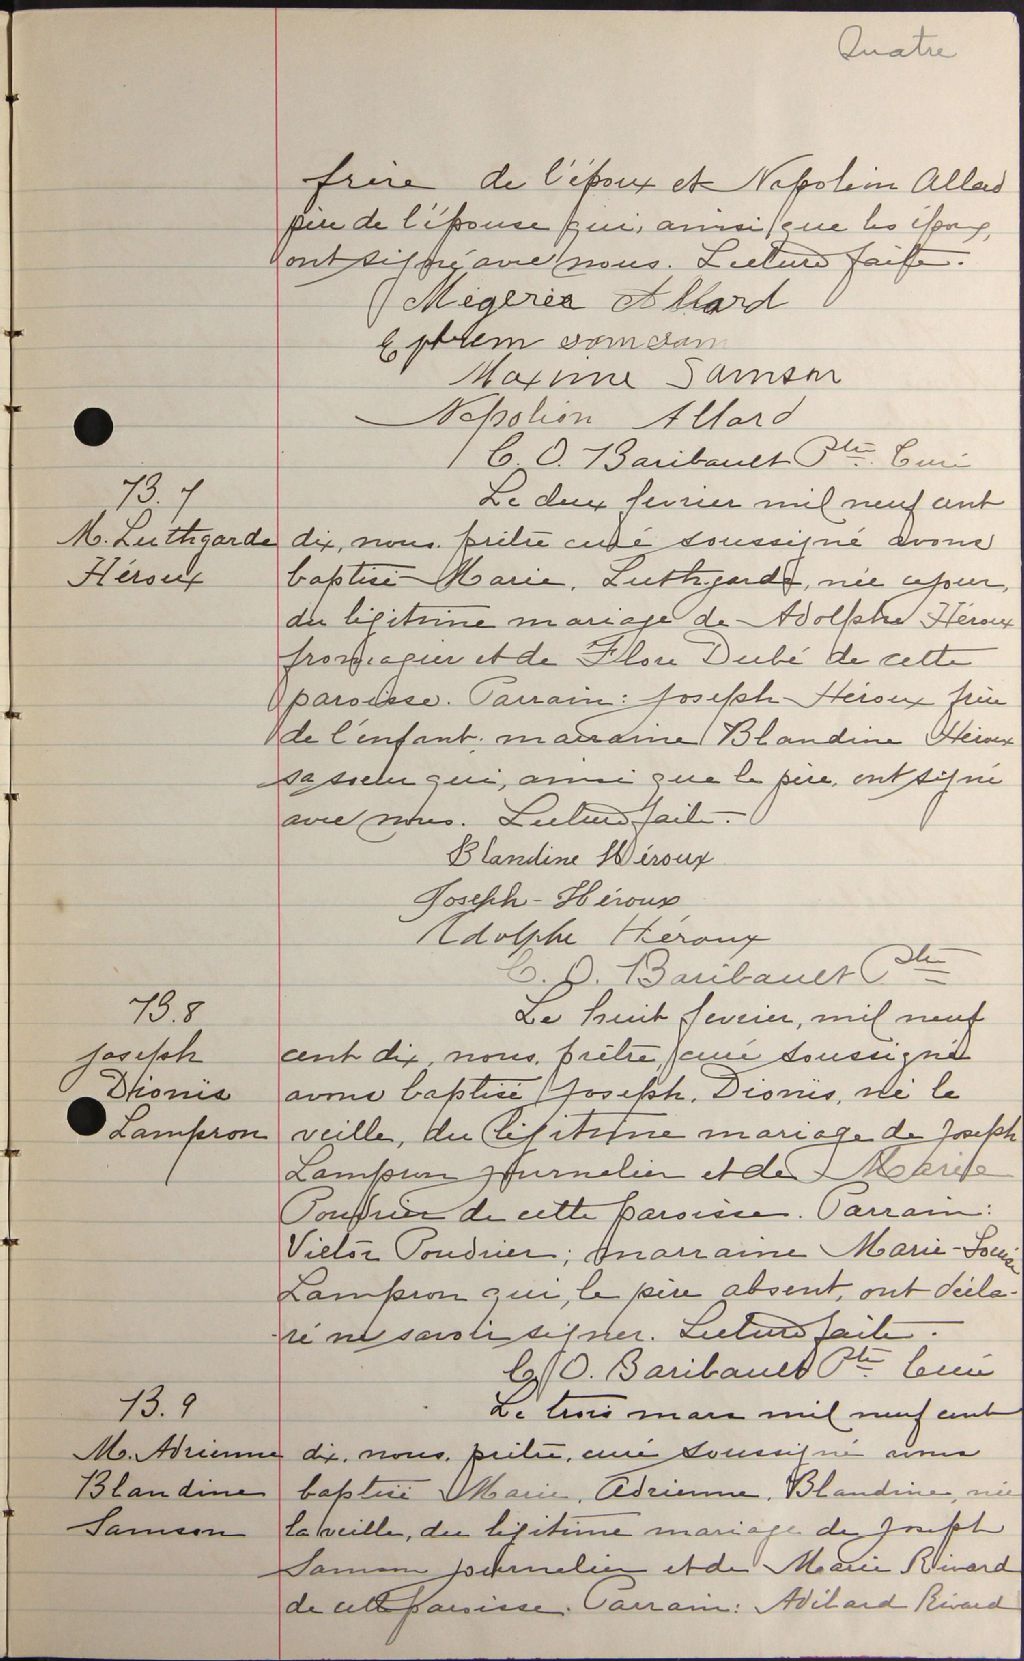 Quatre
frère de l'époux et Napoléon Allard
père de l'épouse qui, ainsi que les époux,
ont signé avec nous. Lecture faite.
Allard
Ephrem
Maxime Samson
Napoléon Allard
C. O. Baribault Ptre Curé
B. 7
M. Luthgarde
Héroux
Le deux fevrier mil neuf cent
dix, nous, prêtre curé soussigné avons
baptisé Marie, Luthgarde, née ce jour,
du légitime mariage de Adolphe Héroux
fromagier et de Flore Dubé de cette
paroisse. Parrain: Joseph Héroux frère
de l'enfant; marraine Blandine Héroux
sa soeur qui, ainsi que le père, ont signé
avec nous. Lecture faite.
Blandine Héroux
Joseph-Héroux
Adolphe Héroux
C. O. Baribault Ptre
B. 8
Joseph
Dionis
Lampron
Le huit fevrier, mil neuf
cent dix, nous, prêtre curé soussigné
avons baptisé Joseph, Dionis, né le
veille, du légitime mariage de Joseph
Lampron journalier et de Marie
Poudrier de cette paroisse. Parrain:
Victor Poudrier; marraine Marie-Louise
Lampron qui, le père absent, ont décla-
ré ne savoir signer. Lecture faite.
C. O. Baribault Ptre Curé
B. 9
M. Adrienne
Blandine
Samson
Le trois mars mil neuf cent
dix, nous, prêtre, curé soussigné avons
baptisé Marie, Adrienne, Blandine, née
la veille, du légitime mariage de Joseph
Samson journalier et de Marie Rivard
de cette paroisse. Parrain: Adélard Rivard